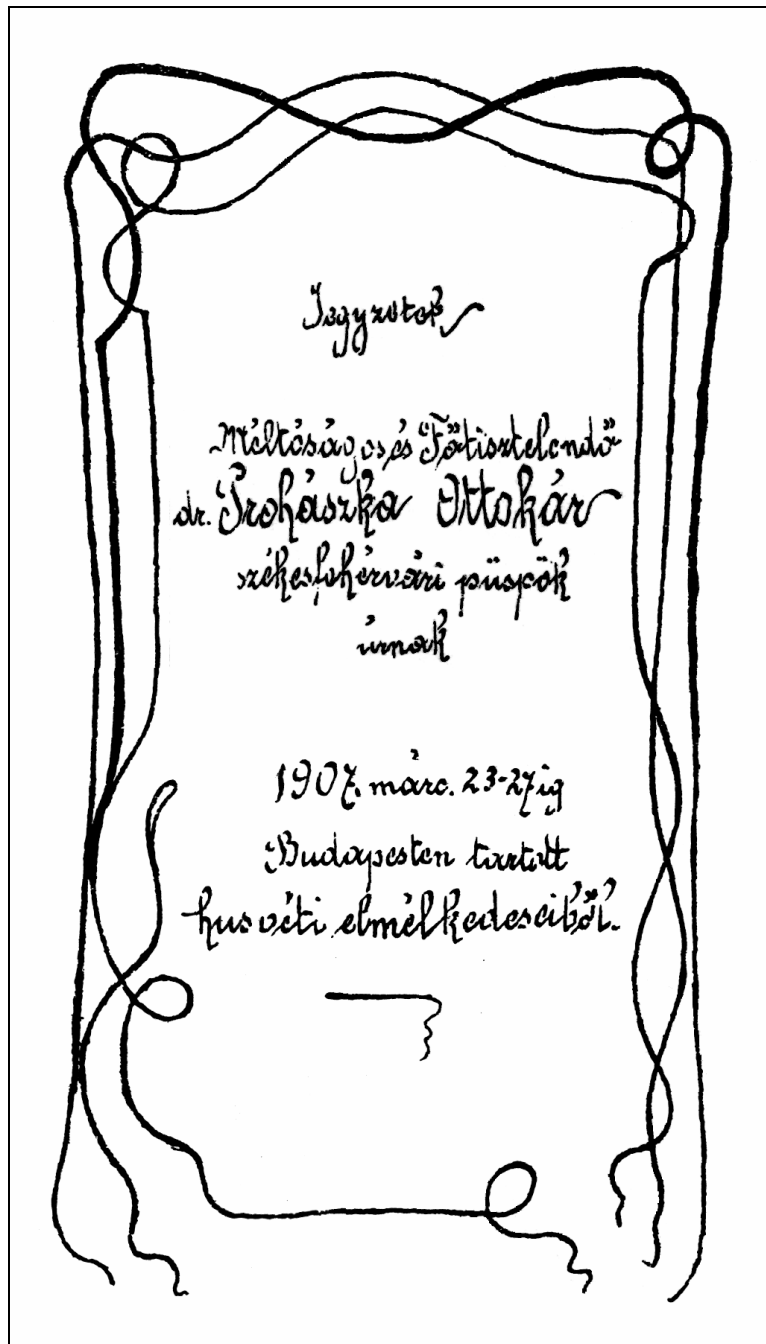 Jegyzetek
Méltóságos és Főtisztelendő
dr. Prohászka Ottokár
székesfehérvári püspök
úrnak
1907. márc. 23-27ig
Budapesten tartott
husvéti elmélkedéseiből.